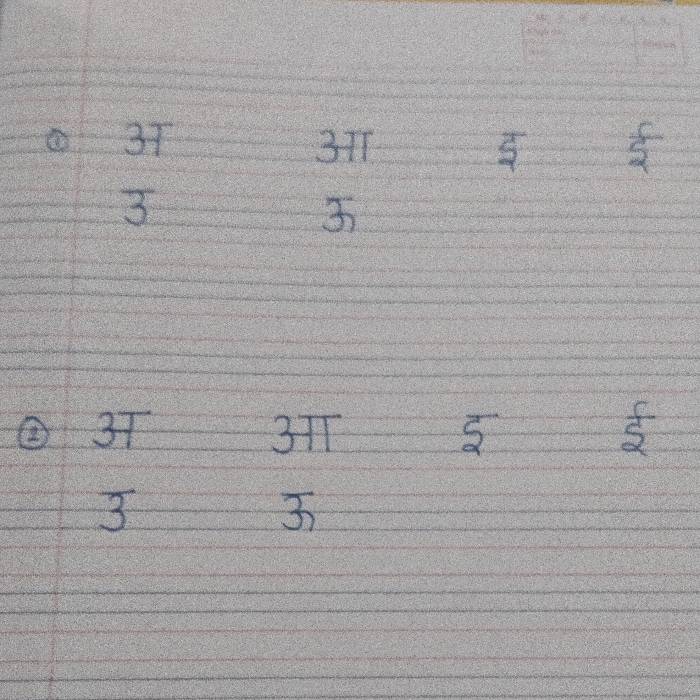 ① अ आ इ ई
उ ऊ
② अ आ इ ई
उ ऊ